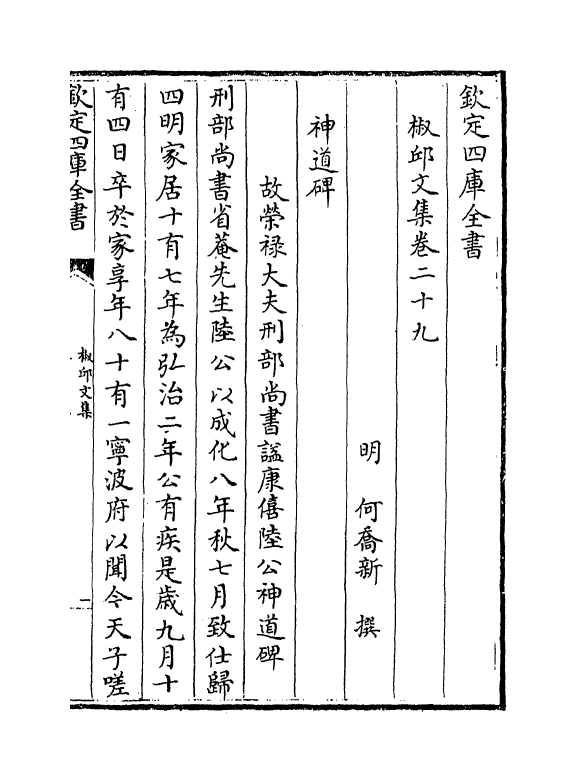 欽定四庫全書
椒邱文集卷二十九
明 何喬新 撰
神道碑
故榮禄大夫刑部尚書謚康僖陸公神道碑
刑部尚書省菴先生陸公以成化八年秋七月致仕歸
四明家居十有七年為弘治二年公有疾是歳九月十
有四日卒於家享年八十有一寧波府以聞令天子嗟
欽定四庫全書
椒邱文集
一